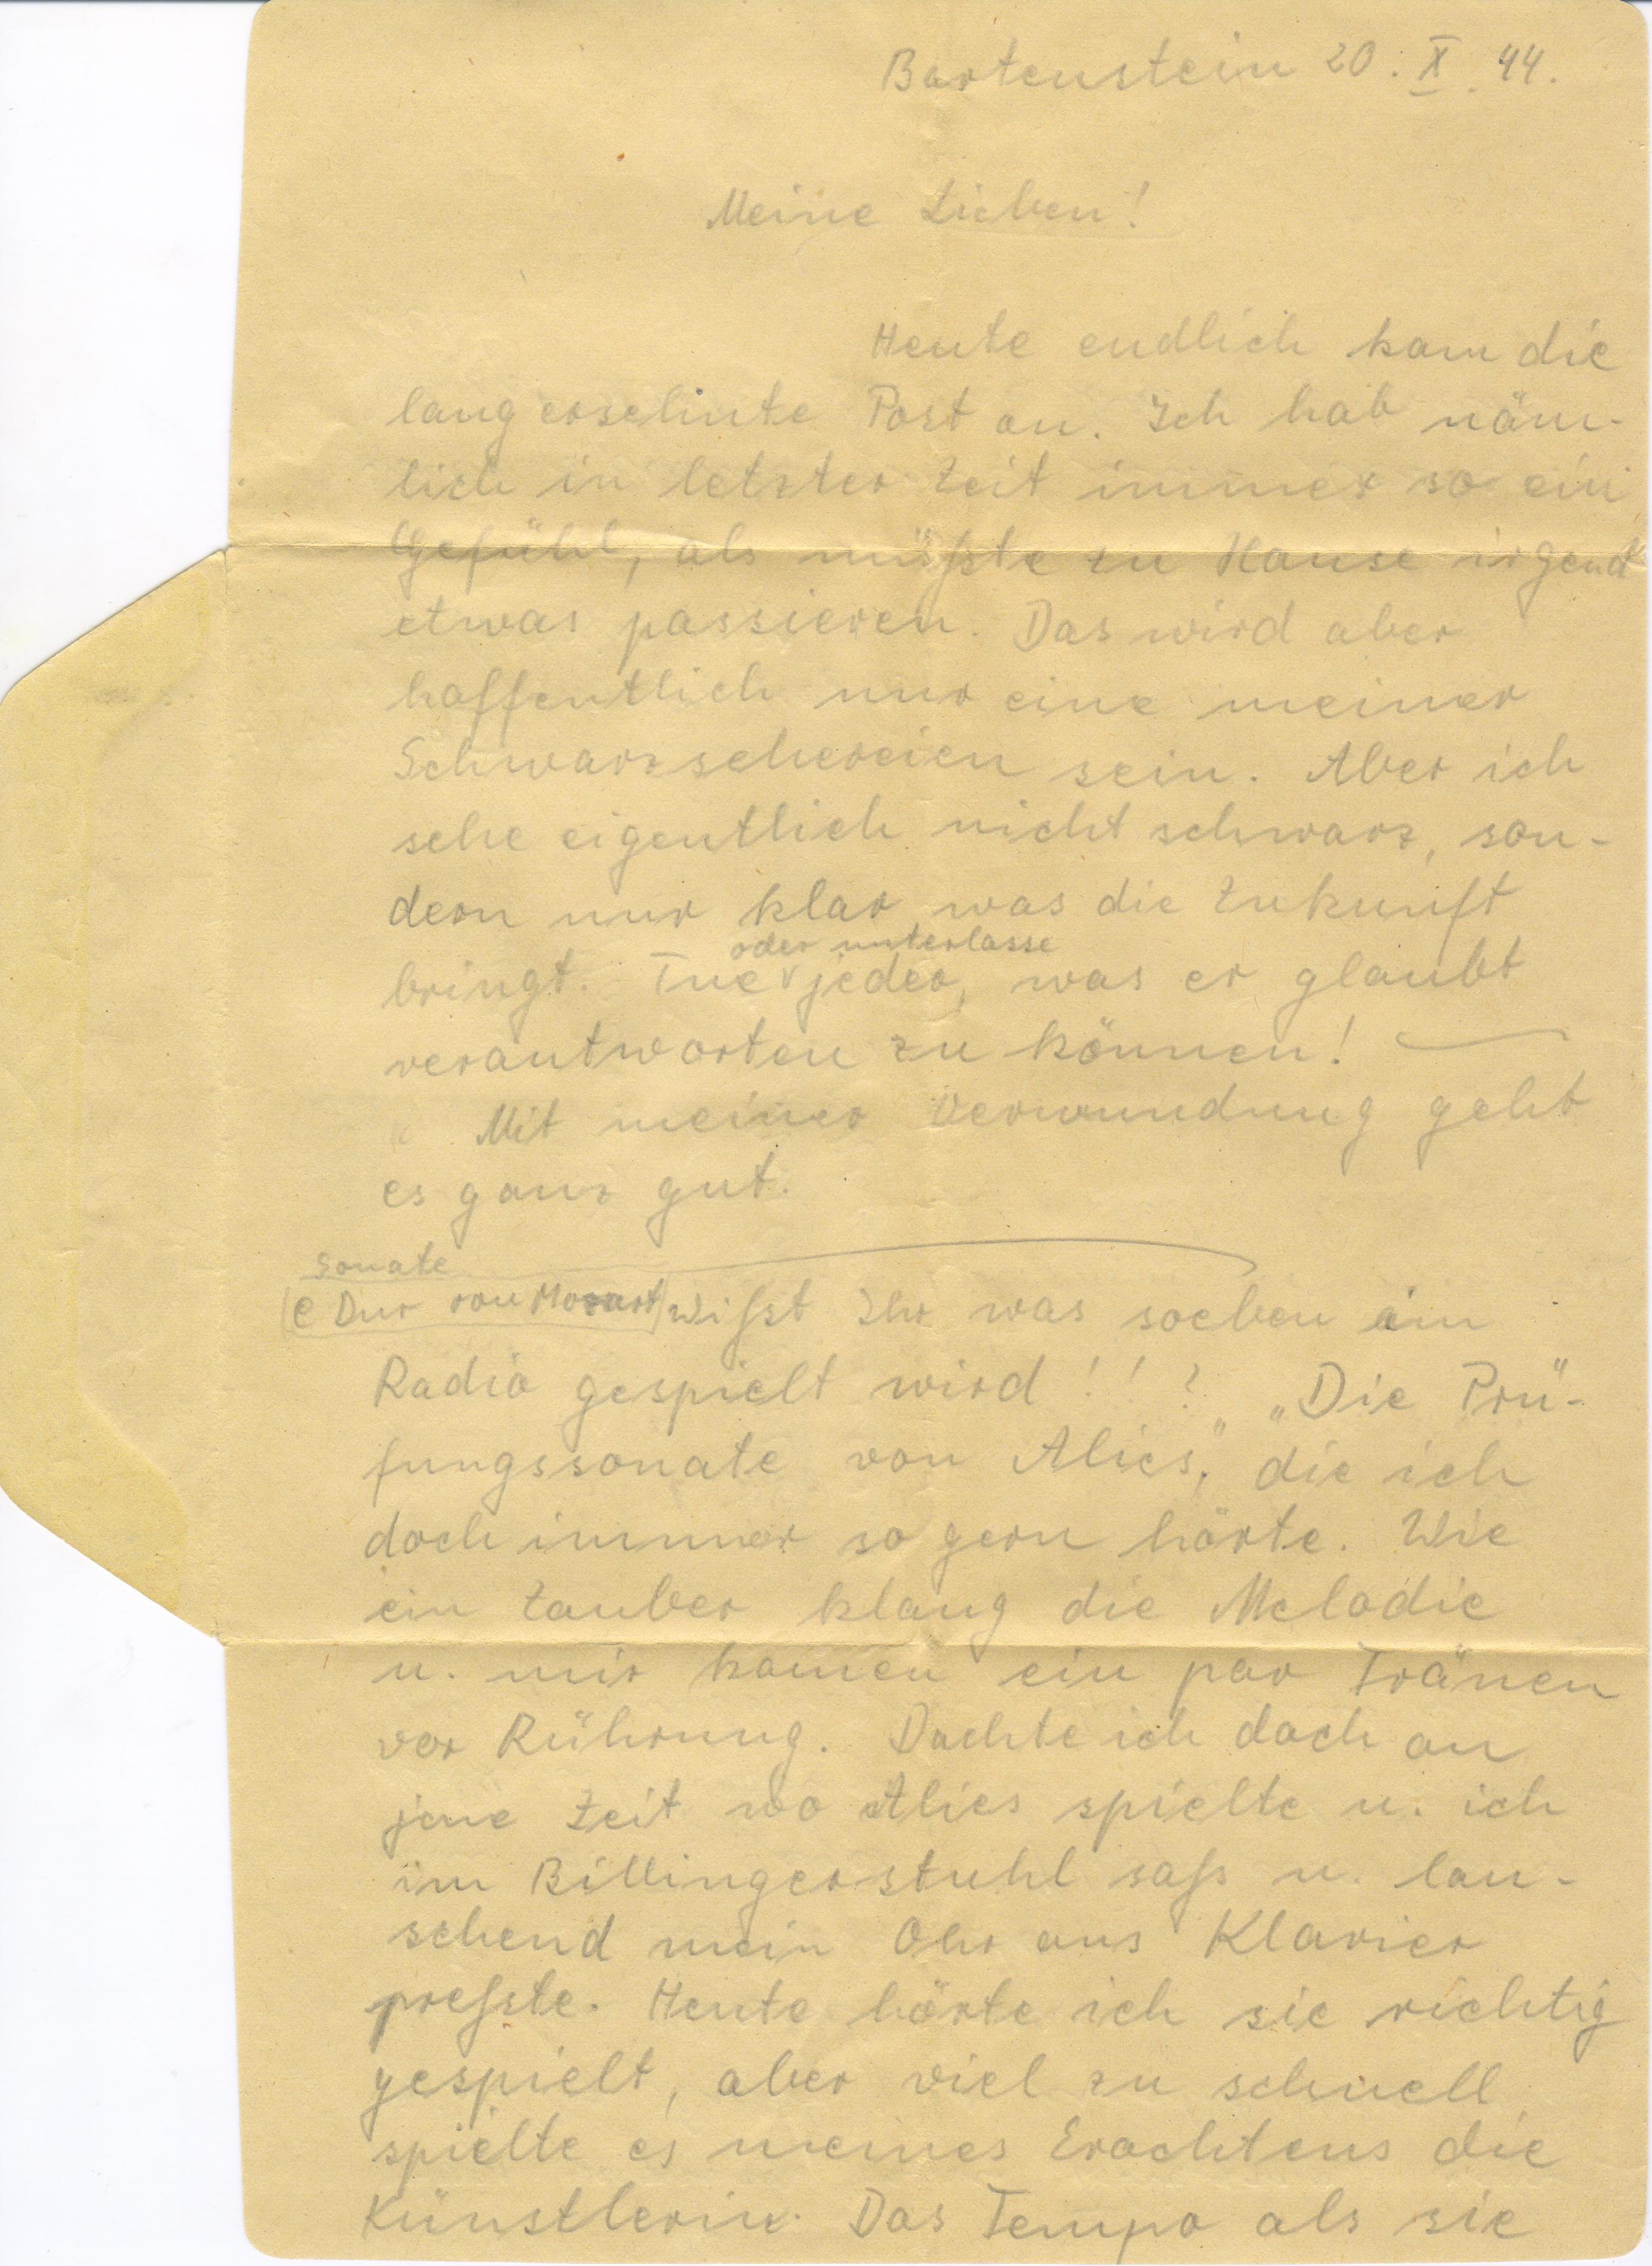 Bartenstein 20. X. 44.
Meine Lieben!
Heute endlich kam die
langersehnte Post an. Ich hab näm-
lich in letzter Zeit immer so ein
Gefühl, als müßte zu Hause irgend
etwas passieren. Das wird aber
hoffentlich nur eine meiner
Schwarzsehereien sein. Aber ich
sehe eigentlich nicht schwarz, son-
dern nur klar was die Zukunft
oder unterlasse
bringt. Tue jeder, was er glaubt
verantworten zu können! —
Mit meiner Verwundung geht
es ganz gut.
Sonate
(C Dur von Mozart) Wißt Ihr was soeben im
Radio gespielt wird!!? „Die Prü-
fungssonate von „Alies“, die ich
doch immer so gern hörte. Wie
ein Zauber klang die Melodie
u. mir kamen ein par Tränen
vor Rührung. Dachte ich doch an
jene Zeit wo Alies spielte u. ich
im Billingerstuhl saß u. lau-
schend mein Ohr ans Klavier
preßte. Heute hörte ich sie richtig
gespielt, aber viel zu schnell
spielte es meines Erachtens die
Künstlerin. Das Tempo als sie